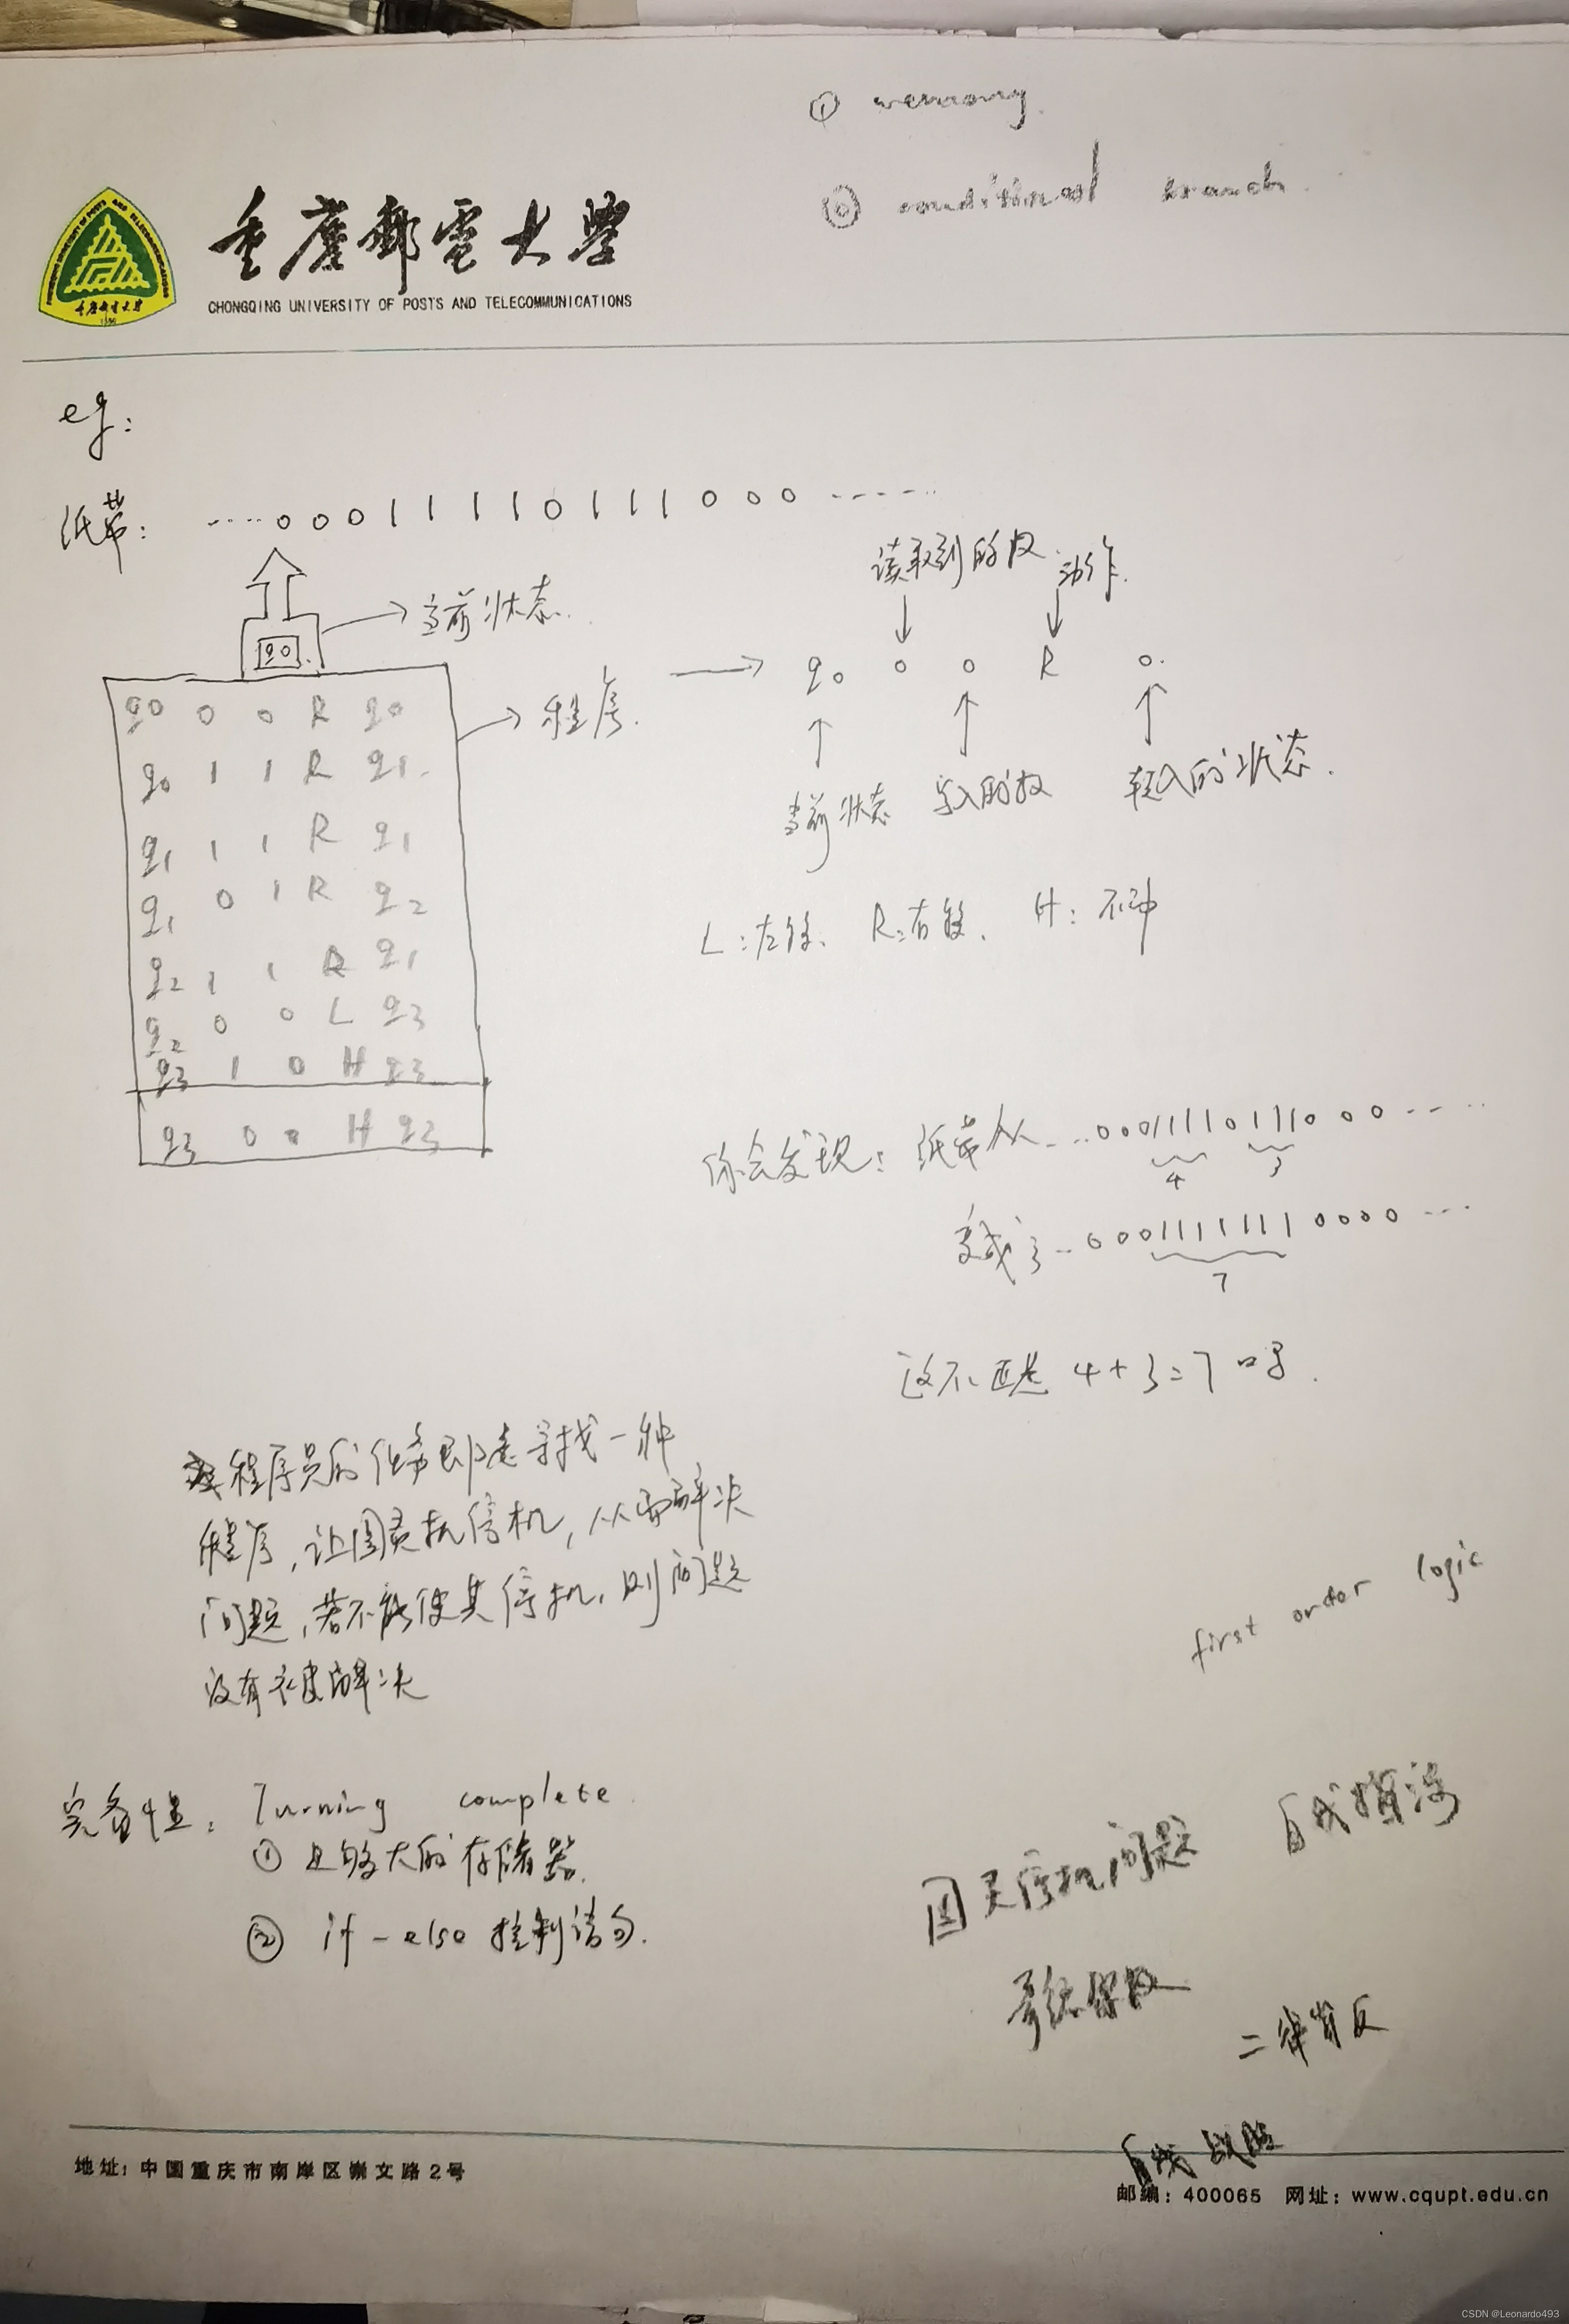 ① memory.
② conditional branch.
重慶郵電大學
CHONGQING UNIVERSITY OF POSTS AND TELECOMMUNICATIONS
eg:
纸带: ····· 0 0 0 1 1 1 1 0 1 1 1 0 0 0 ------
读取到的 动作.
当前状态.
q0
程序. q0 0 0 R 0.
q0 0 0 R q0
q0 1 1 R q1
q1 1 1 R q1
q1 0 1 R q2
q2 1 1 R q1
q2 0 0 L q3
q3 1 0 H q3
q3 0 0 H q3
当前状态 写入的 转入的状态.
L:左移、 R:右移、 H: 不动
你会发现: 纸带从 ...00011110111000-- ...
4 3
变成了 ..00011111110000 --- ..
7
这不正是 4+3=7 吗.
程序员的任务即是寻找一种
程序,让图灵机停机,从而解决
问题,若不能使其停机,则问题
没有被解决
first order logic
完备性: Turning complete.
① 足够大的存储器.
② if-else 控制语句.
图灵停机问题
自我指涉
二律背反
自我
地址:中国重庆市南岸区崇文路2号
邮编:400065 网址:www.cqupt.edu.cn
CSDN @Leonardo493